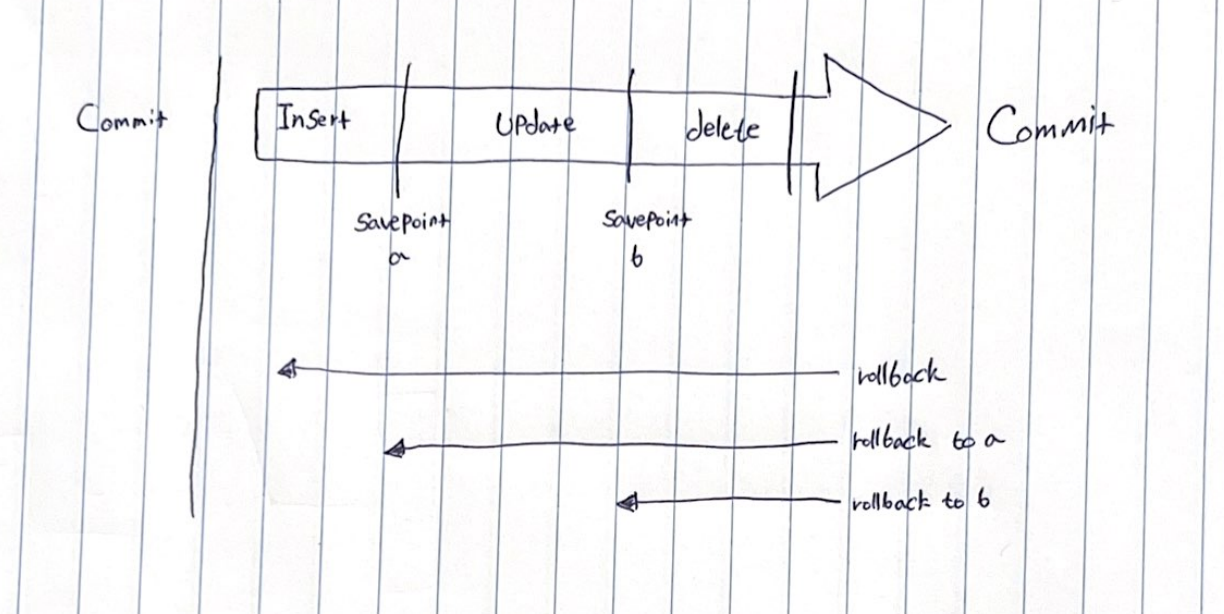 Commit
Insert
Update
delete
Commit
Savepoint
a
Savepoint
b
rollback
rollback to a
rollback to b